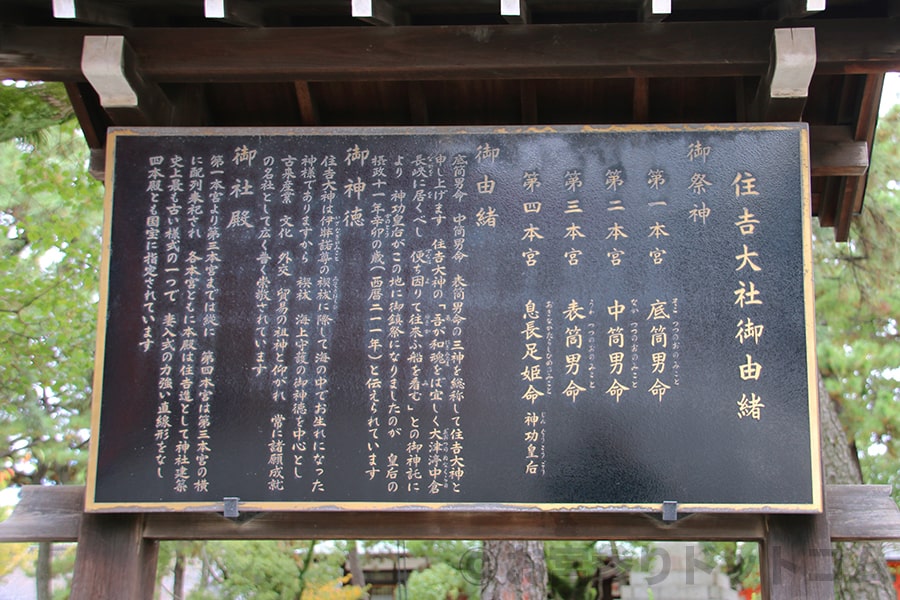 住吉大社御由緒
御祭神
第一本宮 底筒男命
そこ つつのおのみこと
第二本宮 中筒男命
なか つつのおのみこと
第三本宮 表筒男命
うわ つつのおのみこと
第四本宮 息長足姫命 神功皇后
おきながたらしひめのみこと じんぐうこうごう
御由緒
底筒男命 中筒男命 表筒男命の三神を総称して住吉大神と
申し上げます 住吉大神の「吾が和魂をば宜しく大津渟中倉
長峡に居くべし 便ち因りて往来ふ船を看む」との御神託に
より 神功皇后がこの地に御鎮祭になりましたのが 皇后の
摂政十一年辛卯の歳（西暦二一一年）と伝えられています
御神徳
住吉大神は伊弉諾尊の禊祓に際して海の中でお生れになった
神様でありますから 禊祓 海上守護の御神徳を中心とし
古来産業 文化 外交 貿易の祖神と仰がれ 常に諸願成就
の名社として広く普く崇敬されています
御社殿
第一本宮より第三本宮までは縦に 第四本宮は第三本宮の横
に配列奉祀され 各本宮ともに本殿は住吉造として神社建築
史上最も古い様式の一つで 妻入式の力強い直線形をなし
四本殿とも国宝に指定されています